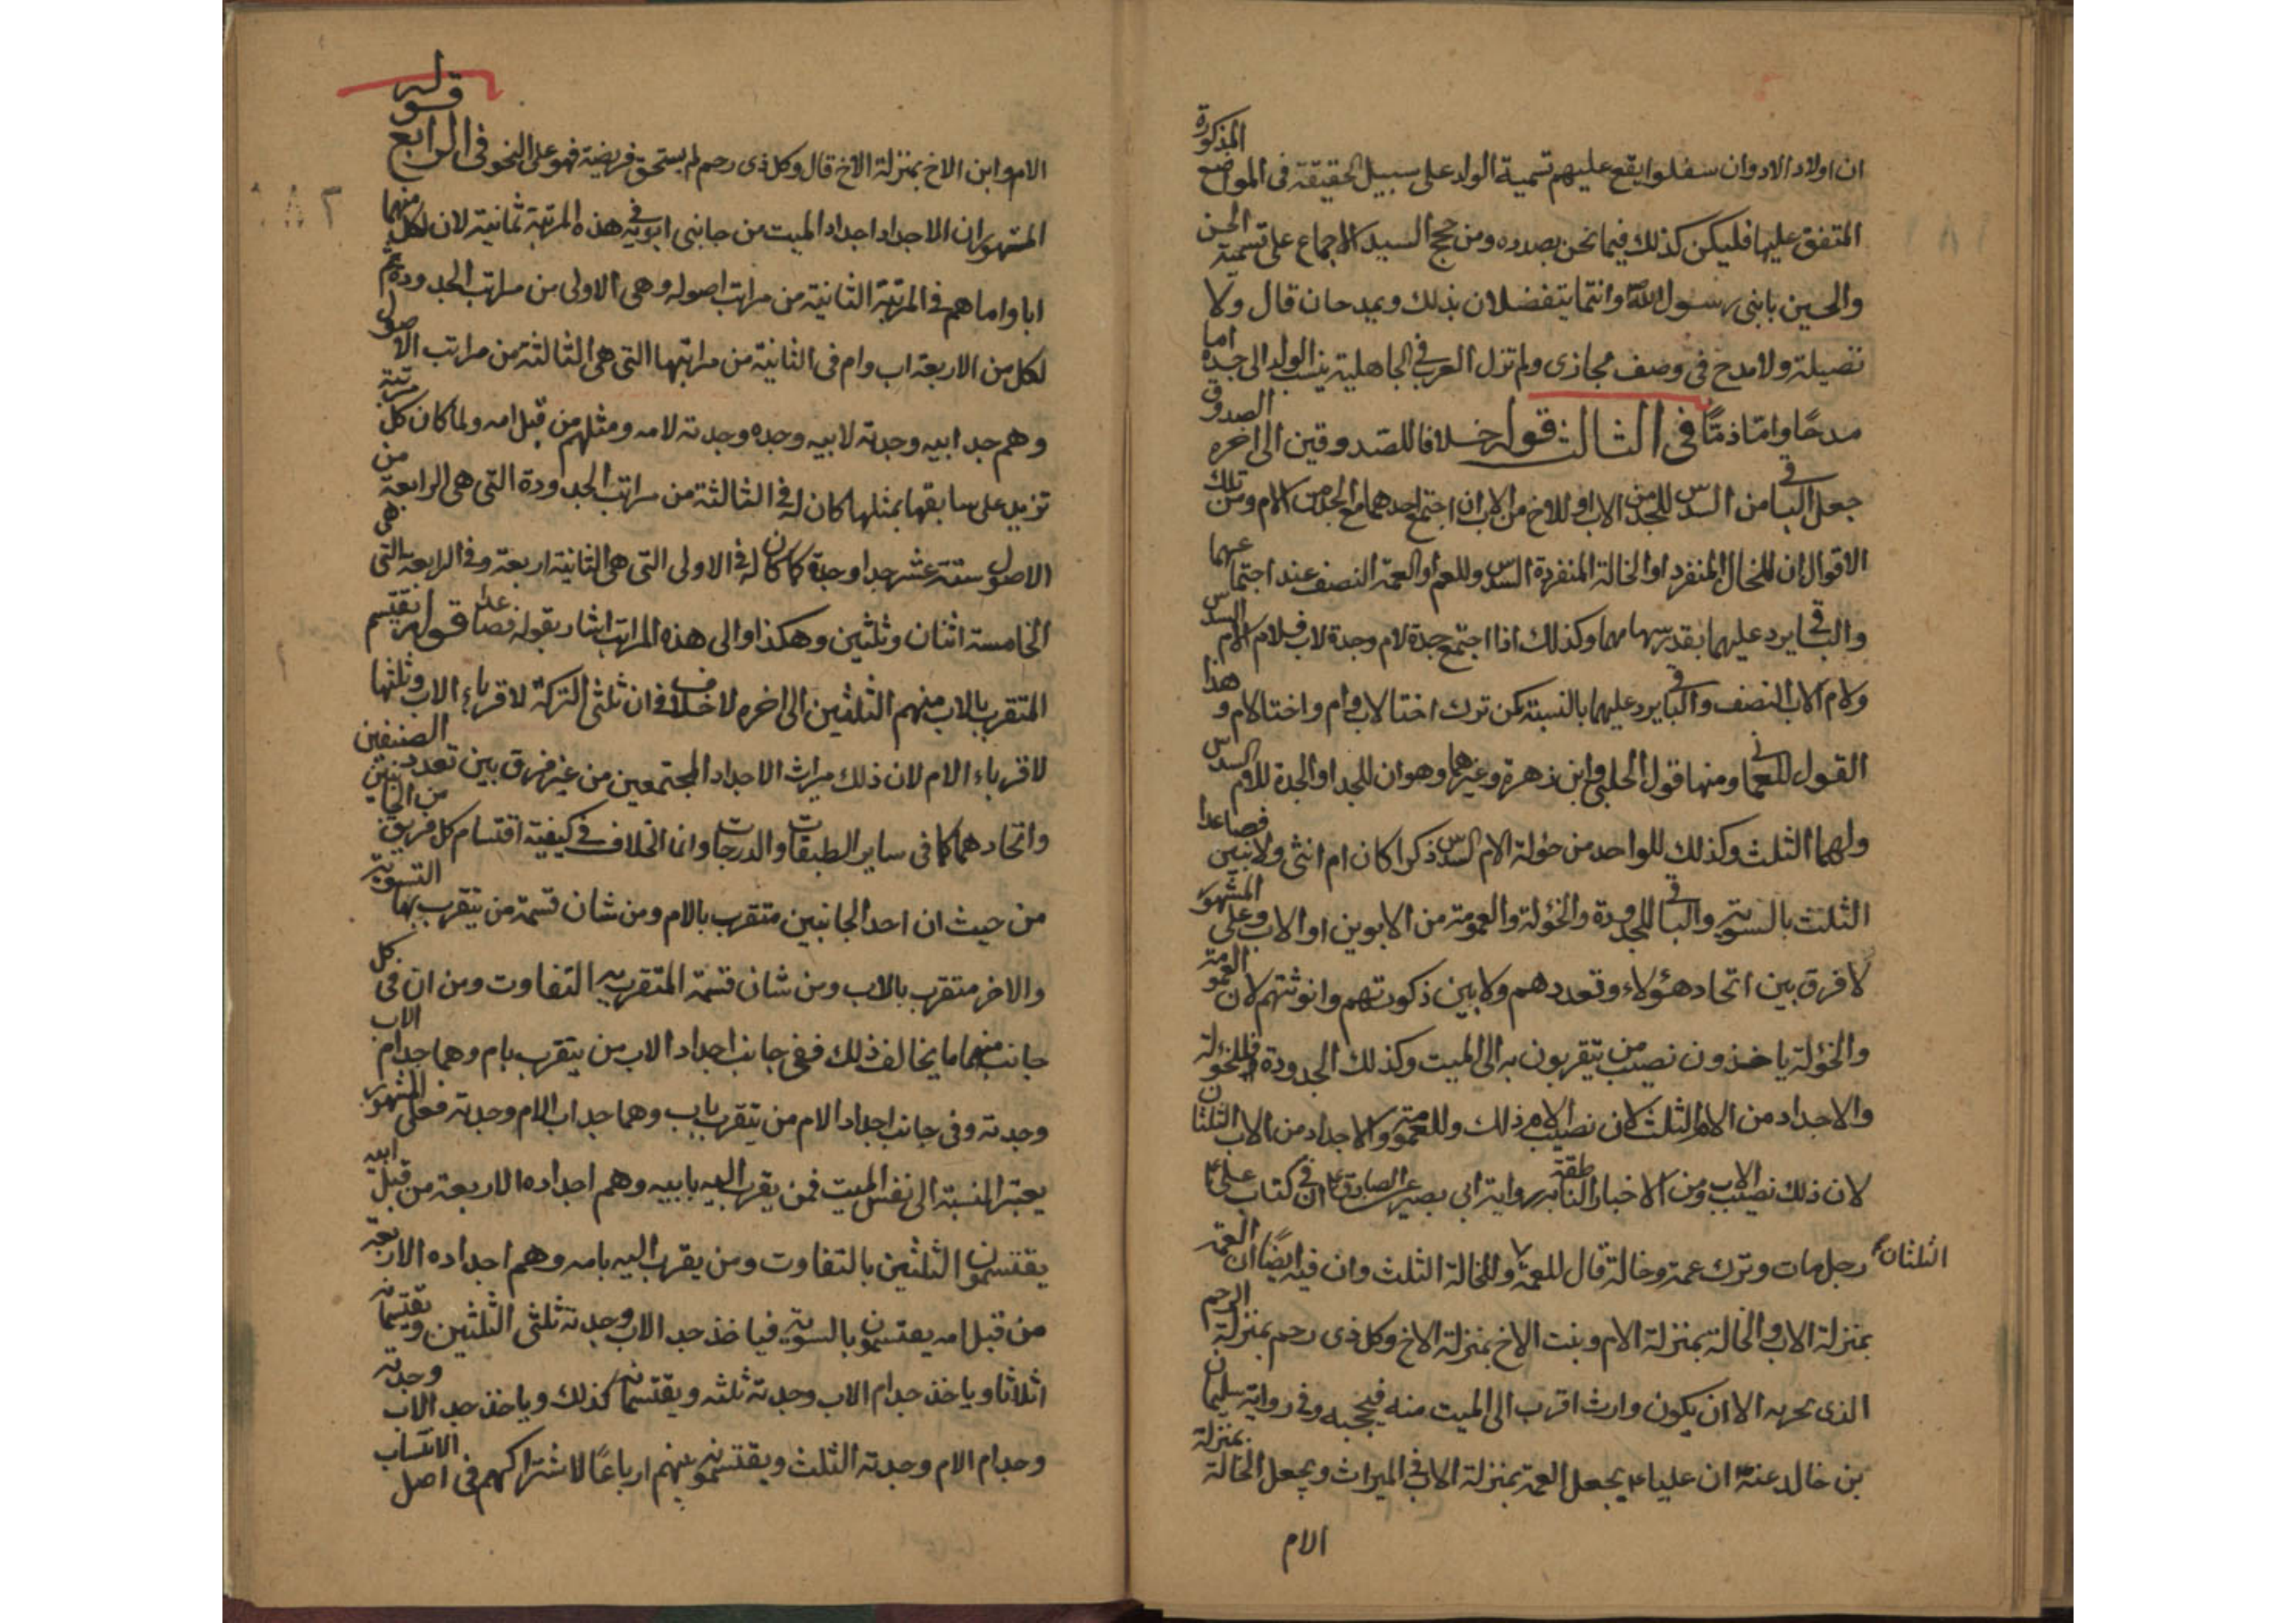 ان اولاد الاولاد وان سفلوا يقع عليهم تسمية الولد على سبيل الحقيقة فى المواضع المذكورة
المتفق عليها فليكن كذلك فيما نحن بصدده ومن حجج السيد الاجماع على تسمية الحسن
والحسين بابنى رسول الله وانهما يتفضلان بذلك ويمدحان قال ولا
فضيلة ولا مدح فى وصف مجازى ولم تزل العرب فى الجاهلية ينسب الولد الى جده اما
مدحًا واما ذمًا فى الثالث قوله خلافا للصدوقين الى اخره الصدوق
جعل الباقى من السدس للجد من الاب او للاخ من الاب ان اجتمع احدهما مع الجد من الام ومن تلك
الاقوال ان للخال المنفرد او الخالة المنفردة السدس وللعم او العمة النصف عند اجتماعهما
والباقى يرد عليهما بقدر سهامهما وكذلك اذا اجتمع جدة لام وجدة لاب فلام الام السدس
ولام الاب النصف والباقى يرد عليهما بالنسبة كمن ترك اختا لاب وام واختا لام و هذا
القول للعمانى ومنها قول الحلبى وابن زهرة وغيرهما وهو ان للجد او الجدة للام السدس
ولهما الثلث وكذلك للواحد من خؤلة الام السدس ذكرا كان ام انثى ولاثنين فصاعدا
الثلث بالسوية والباقى للجدودة والخؤلة والعمومة من الابوين او الاب وعلى المشهور
لا فرق بين اتحاد هؤلاء وتعددهم ولا بين ذكورتهم وانوثتهم لان العمومة
والخؤلة ياخذون نصيب من يتقربون به الى الميت وكذلك الجدودة فللخؤلة
والاجداد من الام الثلث لان نصيب الام ذلك وللعمومة والاجداد من الاب الثلثان
لان ذلك نصيب الاب ومن الاخبار الناطقة به رواية ابى بصير عن الصادق ع ان فى كتاب على ع
رجل مات وترك عمة وخالة قال للعمة وللخالة الثلث وان فيه ايضًا ان العمة
الثلثان
بمنزلة الاب والخالة بمنزلة الام وبنت الاخ بمنزلة الاخ وكل ذى رحم بمنزلة الرحم
الذى يجر به الا ان يكون وارث اقرب الى الميت منه فيحجبه وفى رواية سليمان
بن خالد عنه ان عليا ع يجعل العمة بمنزلة الاب فى الميراث ويجعل الخالة بمنزلة
الام
الام وابن الاخ بمنزلة الاخ قال وكل ذى رحم لم يستحق فريضة فهو على النحو فى الرابع قوله
المشهور ان الاجداد اجداد الميت من جانبى ابويه فى هذه المرتبة ثمانية لان لكل منهما
ابا واما هم فى المرتبة الثانية من مراتب اصوله وهى الاولى من مراتب الجدودة ثم
لكل من الاربعة اب وام فى الثانية من مراتبها التى هى الثالثة من مراتب الاصول
وهم جد ابيه وجدته لابيه وجده وجدته لامه ومثلهم من قبل امه ولما كان كل مرتبة
تزيد على سابقها بمثلها كان له فى الثالثة من مراتب الجدودة التى هى الرابعة من
الاصول ستة عشر جدا وجدة كما كان له فى الاولى التى هى الثانية اربعة وفى الرابعة التى هى
الخامسة اثنان وثلثين وهكذا والى هذه المراتب اشار بقوله فصاعدا قوله يقتسم
المتقرب بالاب منهم الثلثين الى اخره لا خلاف فى ان ثلثى التركة لاقرباء الاب وثلثها
لاقرباء الام لان ذلك ميراث الاجداد المجتمعين من غير فرق بين تعدد الصنفين
واتحادهما كما فى ساير الطبقات والدرجات وانما الخلاف فى كيفية اقتسام كل فريق من الجانبين
من حيث ان احد الجانبين متقرب بالام ومن شان قسمة من يتقرب بها التسوية
والاخر متقرب بالاب ومن شان قسمة المتقرب به التفاوت ومن ان فى كل
جانب منهما ما يخالف ذلك ففى جانب اجداد الاب من يتقرب بام وهما جد ام الاب
وجدته وفى جانب اجداد الام من يتقرب باب وهما جد اب الام وجدته فعلى المشهور
يعتبر النسبة الى نفس الميت فمن يقرب اليه بابيه وهم اجداده الاربعة من قبل ابيه
يقتسمون الثلثين بالتفاوت ومن يقرب اليه بامه وهم اجداده الاربعة
من قبل امه يقتسمون بالسوية فياخذ جد الاب وجدته ثلثى الثلثين ويقتسمانه
اثلاثا وياخذ جد ام الاب وجدته ثلثه ويقتسمانه كذلك وياخذ جد الاب وجدته
وجد ام الام وجدته الثلث ويقتسمونه بينهم ارباعًا لاشتراكهم فى اصل الانتساب